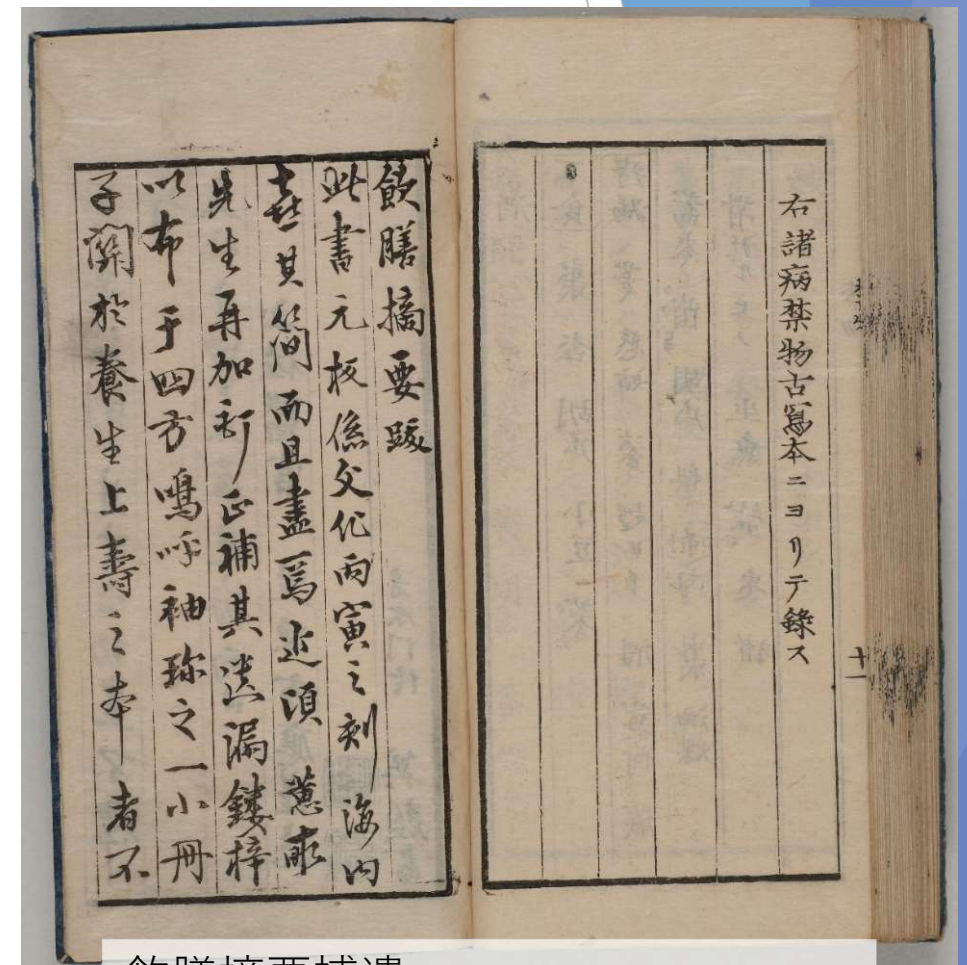 右諸病禁物古寫本ニヨリテ錄ス
十一
飲膳摘要跋
此書元板係文化丙寅之刻海内
喜其簡而且盡焉近頃蕙畝
先生再加訂正補其遺漏鏤梓
以布于四方嗚呼袖珍之一小冊
子關於養生上壽之本者不
飲膳摘要補遺